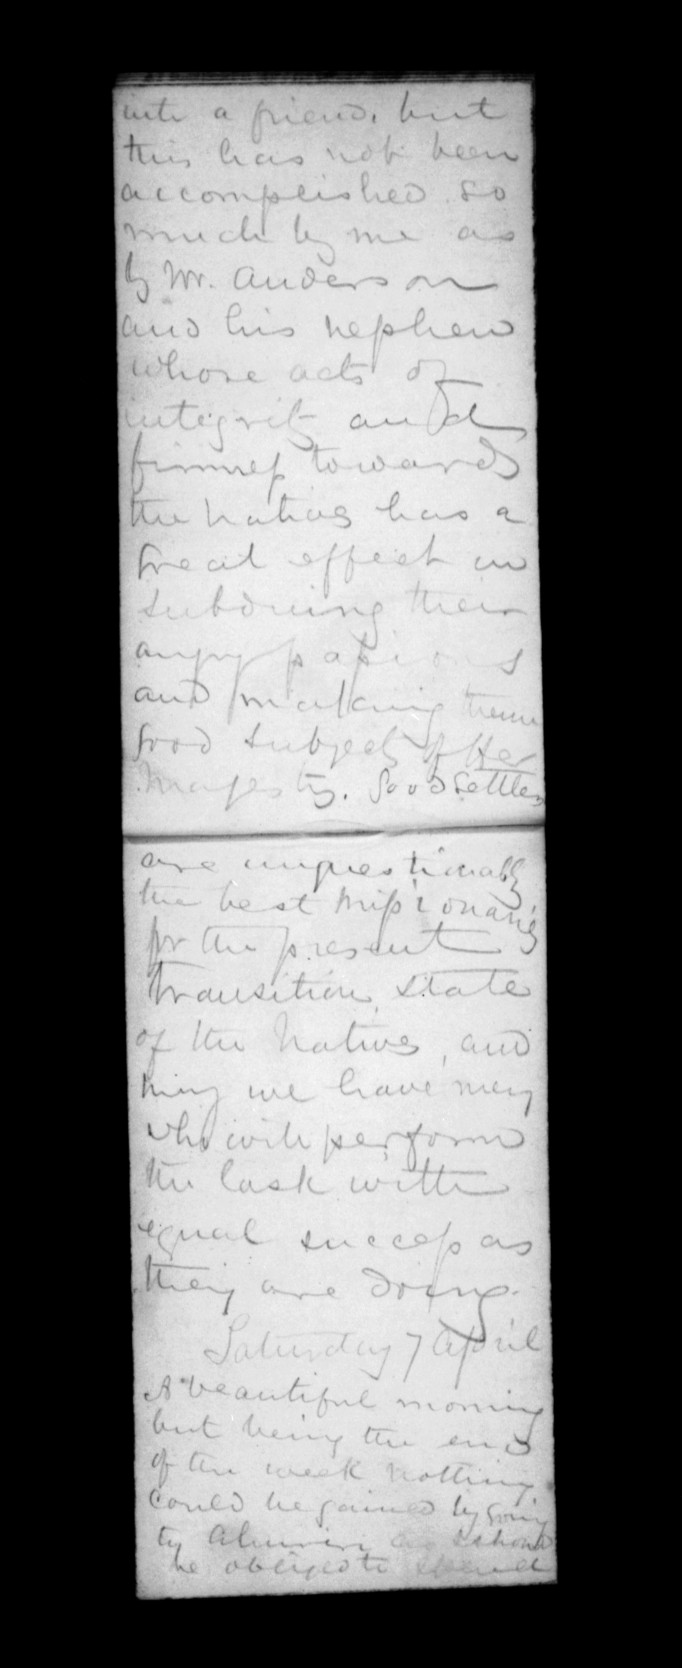 into a friend, but
this has not been
accomplished so
much by me as
by Mr. Anderson
and his nephew
whose acts of
integrity and
firmness towards
the natives has a
great effect in
subduing their
angry passions
and making them
good subjects of Her
Majesty. Good settlers
are unquestionably
the best missionaries
for the present
transition state
of the Natives, and
may we have many
who will perform
the task with
equal success as
they are doing.
Saturday 7 April
A beautiful morning
but being the end
of the week nothing
could be gained by going
to Ahuriri as I should
be obliged to spend